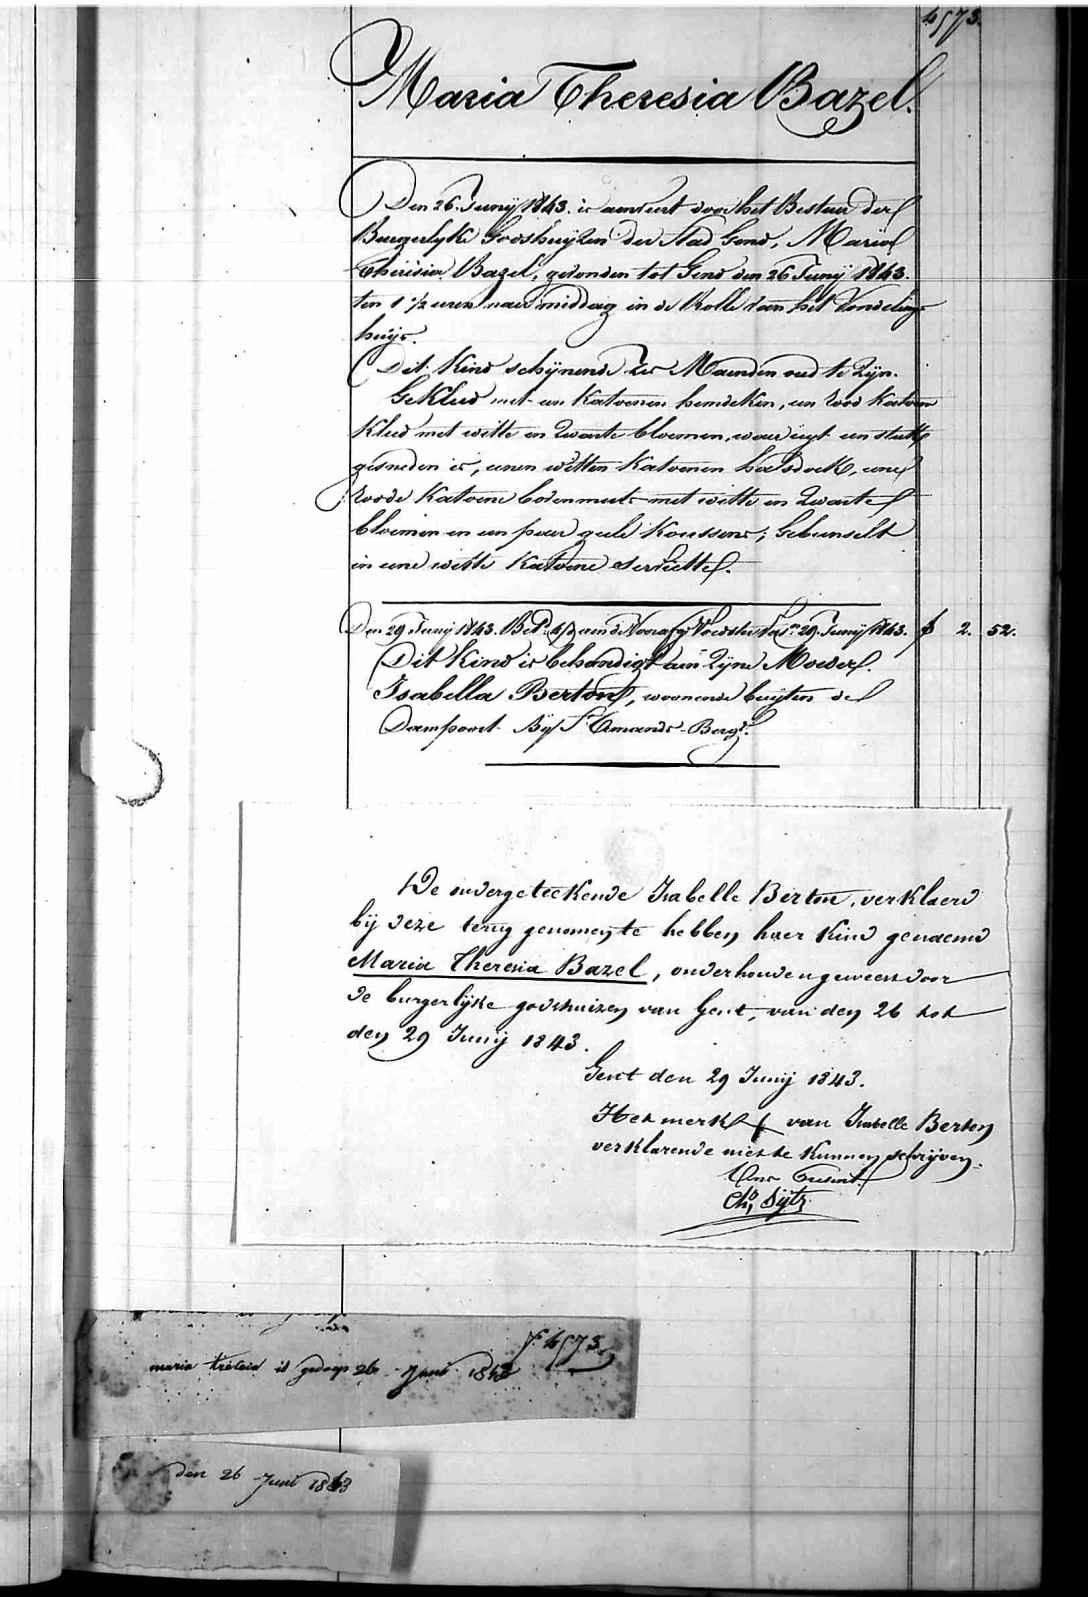 4573.
Maria Theresia Bazel.
Den 26. Junij 1843. is aenveirt door het Bestuer der
Burgerlyke Godshuyzen der Stad Gend, Maria
Theresia Bazel, gevonden tot Gend den 26 Junij 1843.
ten 1 ½ uren naer middag in de Rolle van het Vondeling-
huijs.
Dit Kind schijnende zes Maenden oud te Zijn.
Gekleed met een Katoenen hemdeken, een rood Katoen
Kleed met witte en Zwarte bloemen, waer uyt een stuk
gesneden is, eenen witten Katoenen halsdoek, eene
roode Katoene bovenmuts met witte en Zwarte
bloemen en een paer geele Koussens; Gebunselt
in eene witte Katoene Serviette.
Den 29 Junij 1843. Bet. aen de Voedster 29 Junij 1843. f 2. 52.
Dit Kind is behandigt aen Zijne Moeder.
Isabella Berton, woonende buijten de
Dampoort By St Amands-Berg.
De ondergeteekende Isabelle Berton, verklaerd
bij deze terug genomen te hebben haer Kind genaemd
Maria Theresia Bazel, onderhouden geweest door
de burgerlijke godshuizen van Gent, van den 26 tot
den 29 Junij 1843.
Gent den 29 Junij 1843.
Het merk + van Isabelle Berton
verklarende niet te Kunnen schrijven.
Ons Présent.
Ch.
4573
maria is gedoopt 26 Juni 1843
den 26 Juni 1843